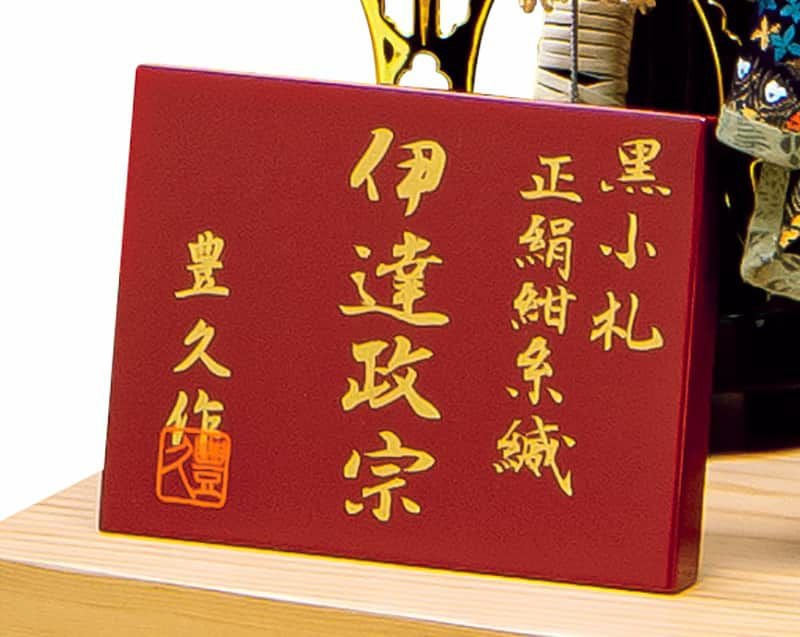 黒小札
正絹紺糸縅
伊達政宗
豊久作
豊久